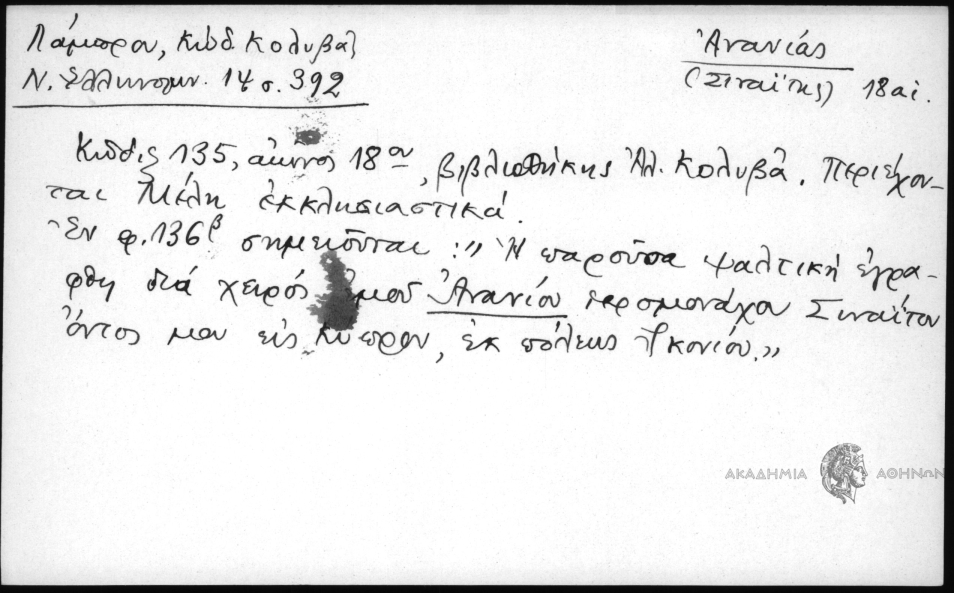 Λάμπρου, Κώδ. Κολυβᾶ
Ν. Ἑλληνομν. 14 σ. 392
Ἀνανίας
(Σιναΐτης) 18 αἰ.
Κῶδιξ 135, αἰῶνος 18ου, βιβλιοθήκης Ἀλ. Κολυβᾶ. Περιέχον-
ται Μέλη ἐκκλησιαστικά.
Ἐν φ. 136β σημειοῦται: „Ἡ παροῦσα ψαλτική ἐγρά-
φθη διά χειρός ἐμοῦ Ἀνανίου ἱερομονάχου Σιναΐτου
ὄντος μου εἰς Κύπρον, ἐκ πόλεως Ἰκονίου.”
ΑΚΑΔΗΜΙΑ ΑΘΗΝΩΝ